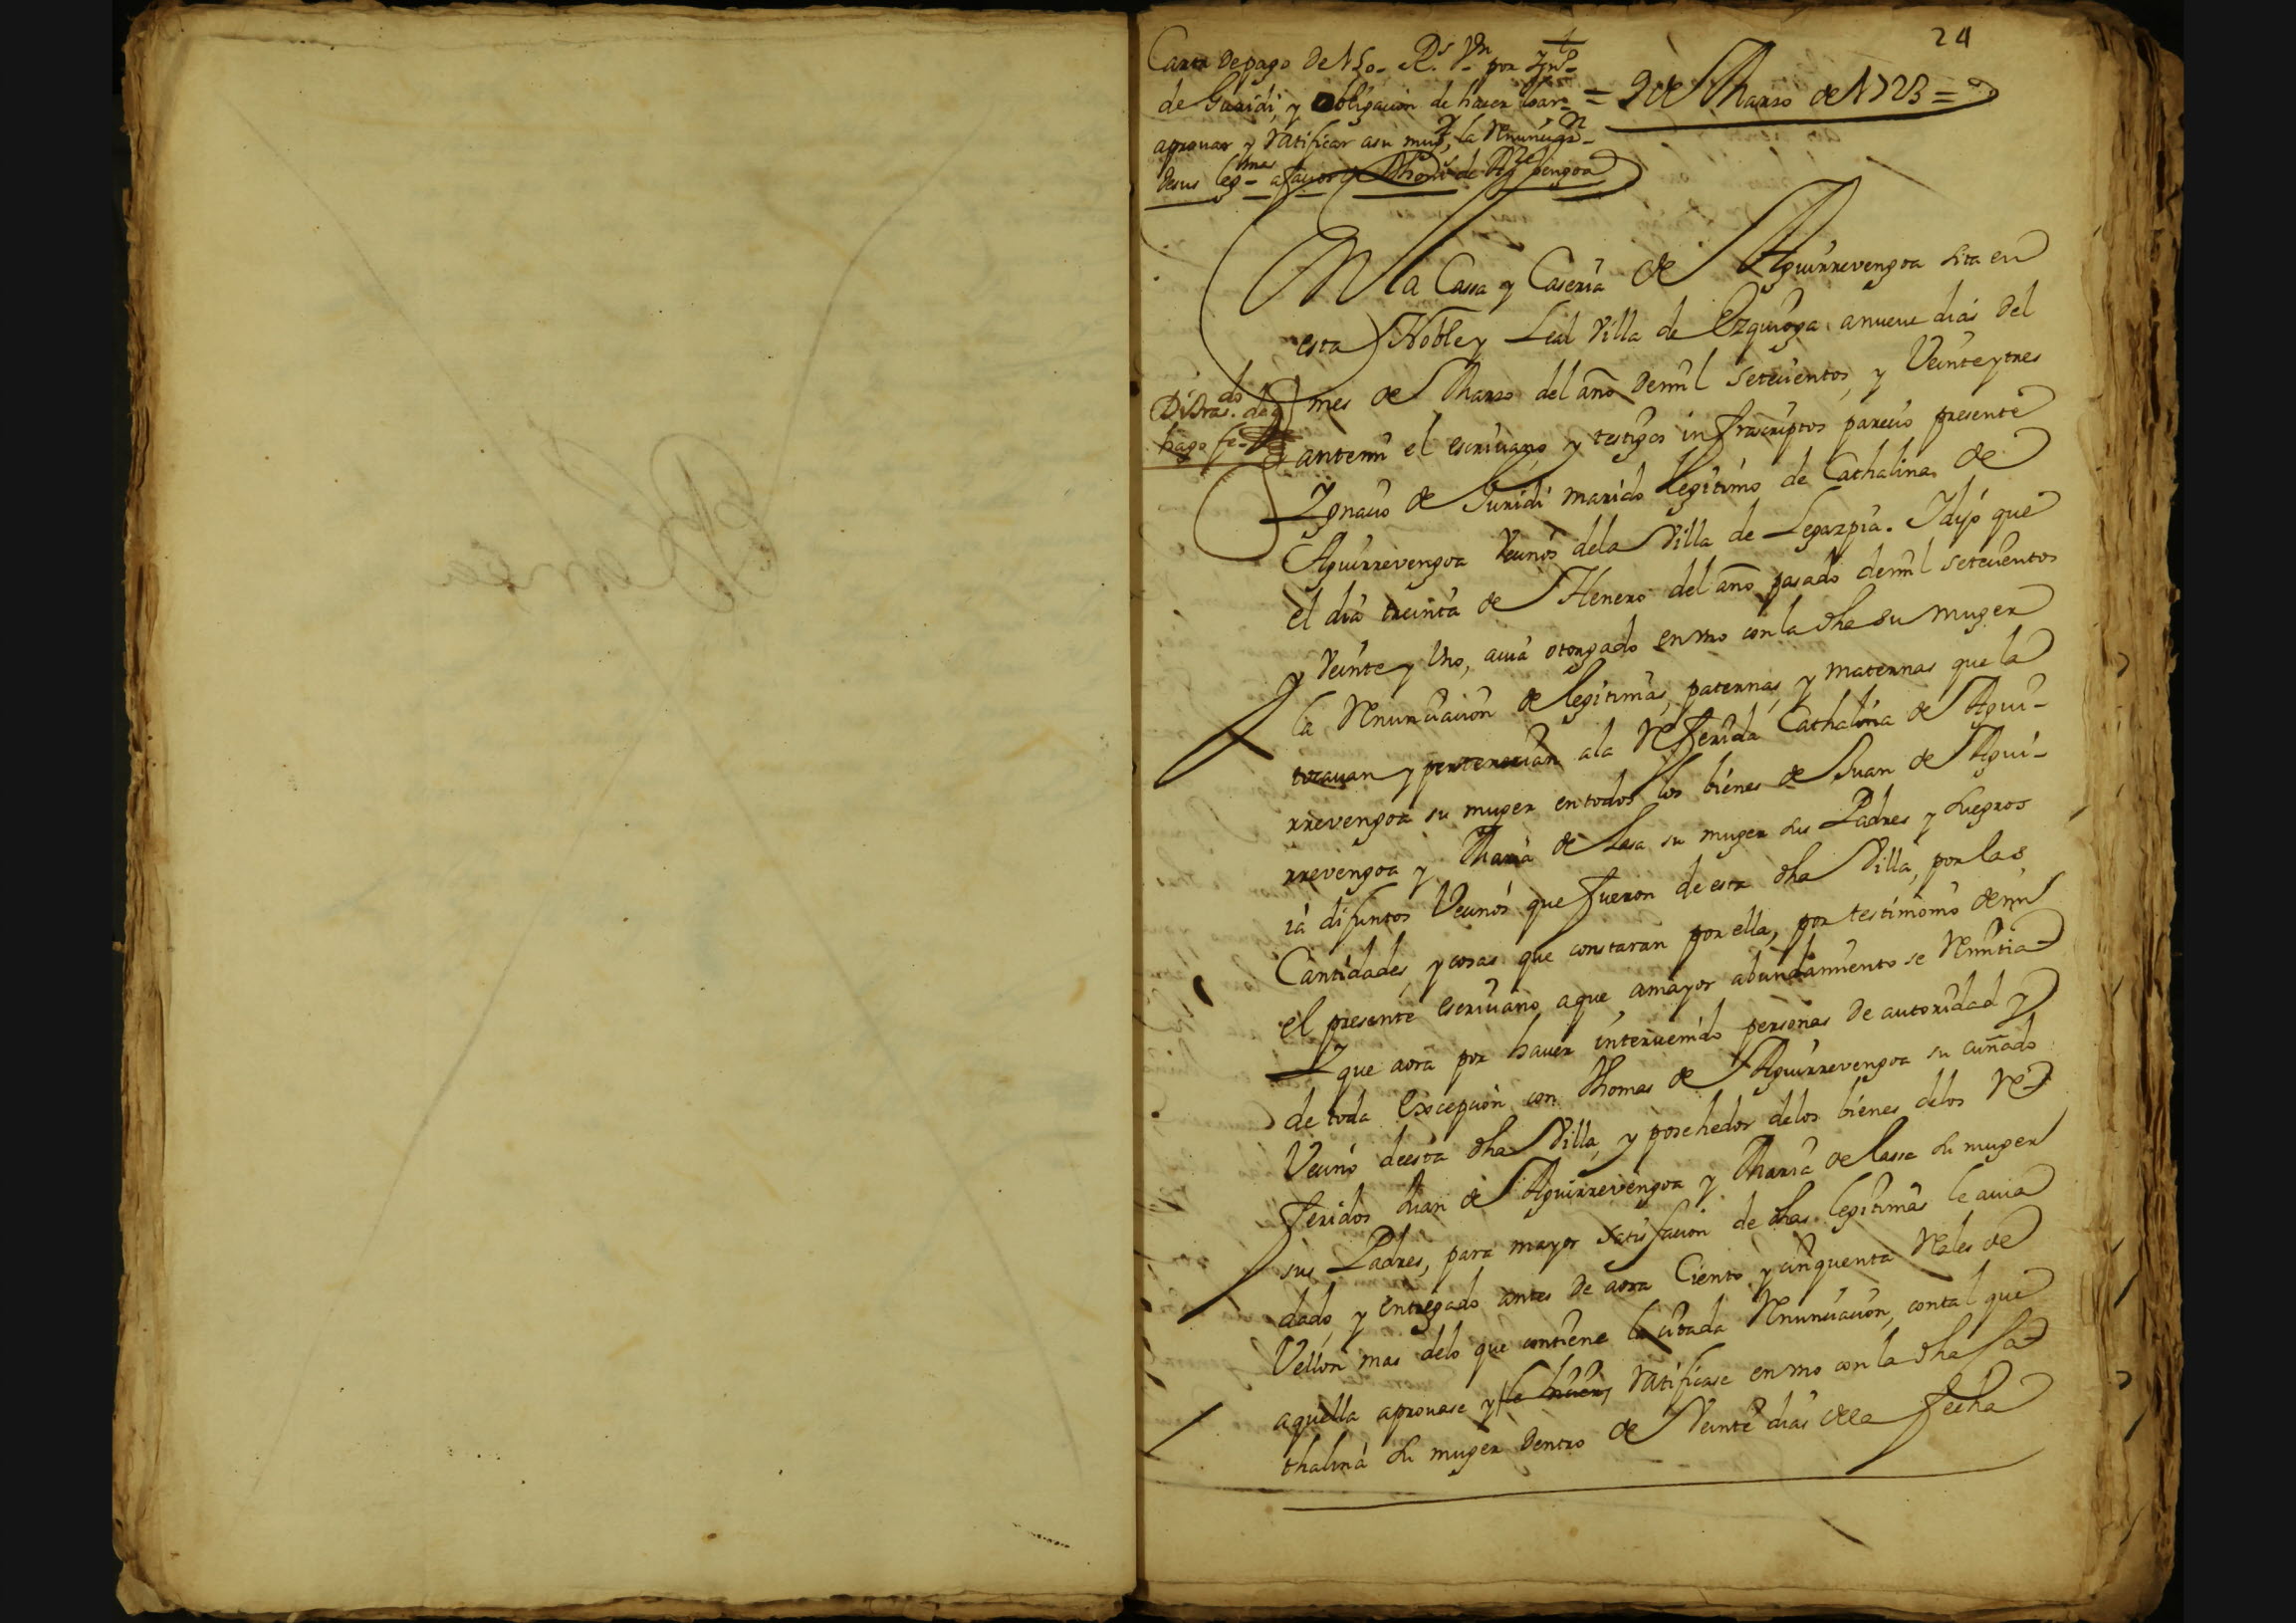 24
Carta de pago de 150 Rs. Vn por Ygnº
de Guridi, y obligacion de hacer loar
aprouar y ratificar a su mugr, la renunciaon
de sus legmas a fauor de Thomas de Agrrebengoa
= 9 de Marzo de 1723 =
En la Cassa y Caseria de Aguirrevengoa sita en
esta Noble y Leal Villa de Ezquioga a nueue dias del
mes de Marzo del año de mill setecientos, y Veinte y tres
ante mi el escriuano, y testigos infrascriptos parecio presente
Ygnacio de Guridi marido legitimo de Cathalina de
Aguirrevengoa Vecinos dela Villa de Legazpia. Y dijo que
el dia treinta de Henero del año pasado de mill setecientos
y Veinte y Uno, auia otorgado en vno con la dha su muger
la Renunciacion de legitimas, paternas, y maternas que la
tocauan y pertenecian ala Referida Cathalina de Agui-
rrevengoa su muger en todos los bienes de Juan de Agui-
rrevengoa y Maria de Lasa su muger sus Padres y suegros
ia difuntos Vecinos que fueron de esta dha Villa, por las
Cantidades, y cosas que constaran por ella, por testimonio de mi
el presente escriuano, a que, a mayor abundamiento se Remitia
Y que aora por hauer interuenido personas de autoridad y
de toda excepcion con Thomas de Aguirrevengoa su cuñado
Vecino de esta dha Villa, y posehedor delos bienes delos Re
feridos Juan de Aguirrevengoa y Maria de Lassa su muger
sus Padres, para mayor satisfacion de dhas legitimas le auia
dado, y entregado antes de aora Ciento y cinquenta Reales de
Vellon mas delo que contiene la citada Renunciacion, con tal que
aquella aprouase y ratificase en vno con la dha Ca
thalina su muger dentro de Veinte dias dela fecha
hago fe